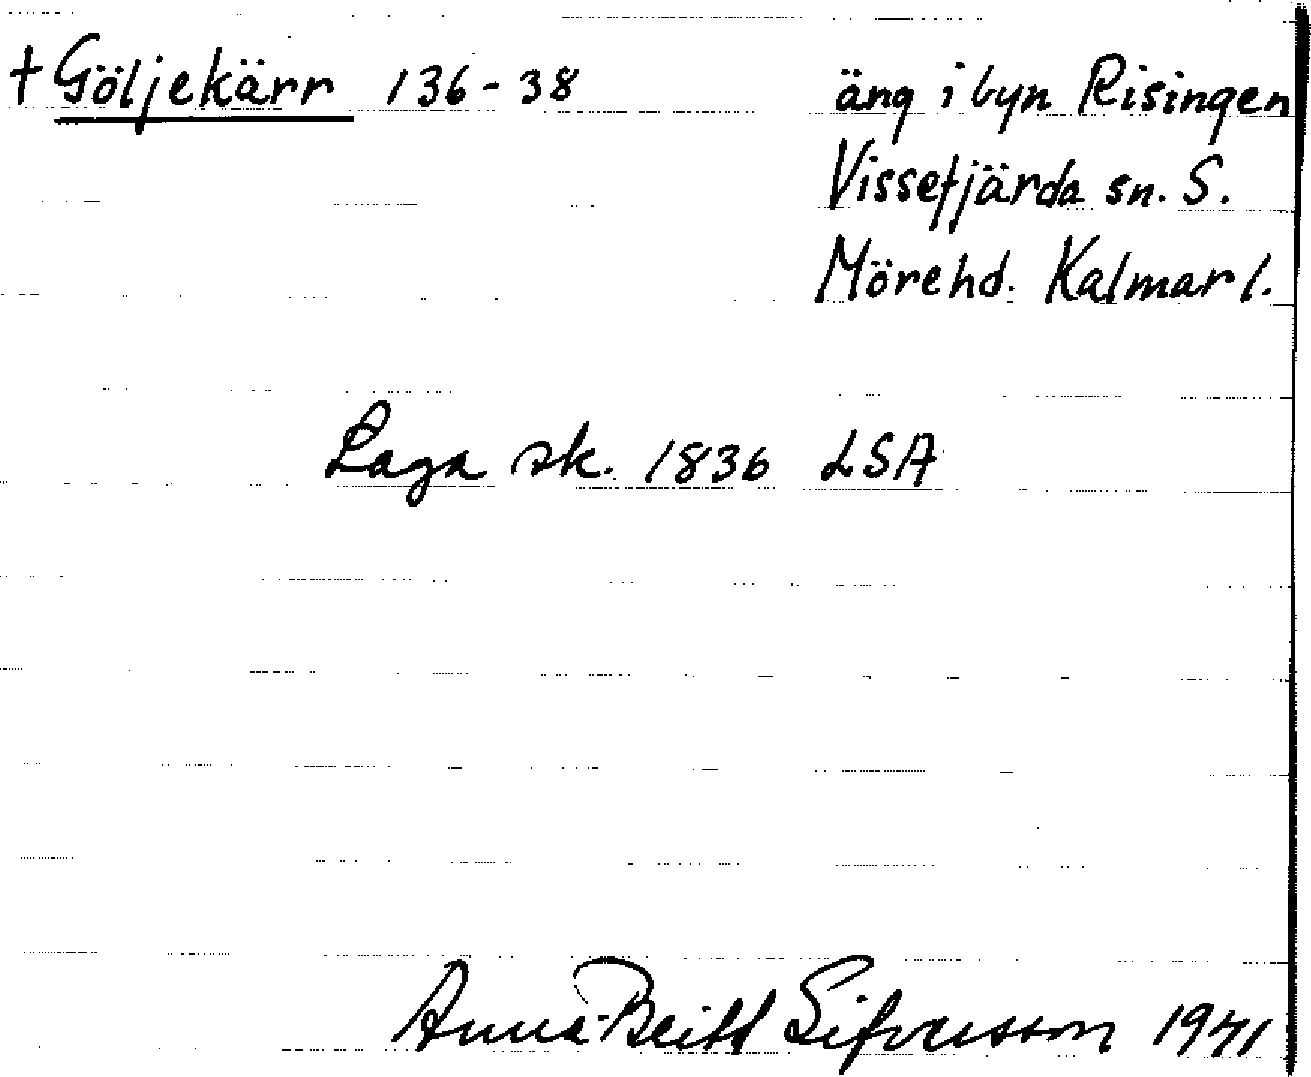 † Göljekärr 136-38 äng i byn Risingen
Vissefjärda sn. S.
Möre hd. Kalmar l.
Laga sk. 1836 LSA
Anna-Britt Sifvensson 1941